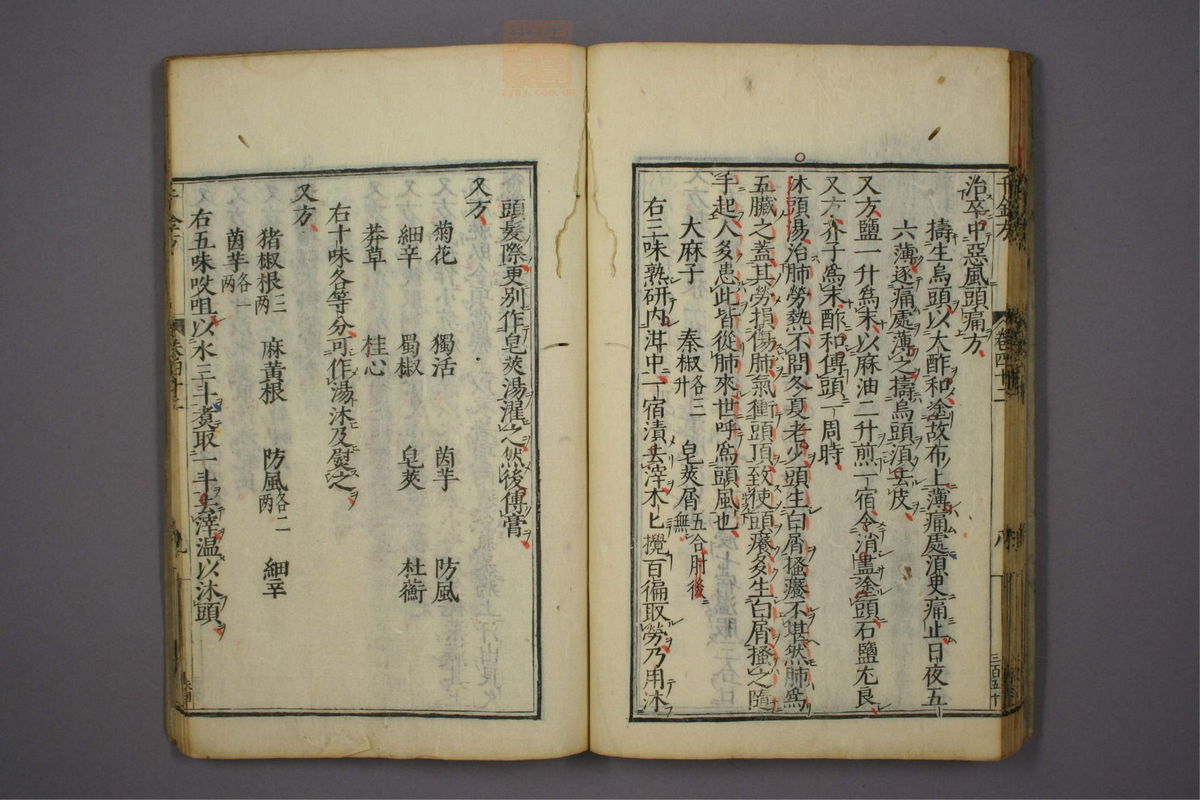 治卒中惡風頭痛方
擣生烏頭以大酢和塗故布上薄痛處湏臾痛止日夜五
六薄逐痛處薄之擣烏頭湏去皮
又方塩一升爲末以麻油二升煎一宿令消盡塗頭石鹽尤良
又方芥子爲末酢和傅頭一周時
沐頭湯治肺勞熱不問冬夏老少頭生白屑搔癢不堪然肺爲
五臟之蓋其勞損傷肺氣衝頭頂致使頭癢多生白屑搔之隨
手起人多患此皆從肺來世呼爲頭風也
大麻子 秦椒各三升 皂莢屑五合肘後無
右三味熟研内泔中一宿漬去滓木匕攪百徧取勞乃用沐
千金方 卷四十二 八 三百五十
頭髮際更別作皂莢湯濯之然後傅膏
又方
菊花 獨活 茵芋 防風
細辛 蜀椒 皂莢 杜蘅
莽草 桂心
右十味各等分可作湯沐及熨之
又方
猪椒根三两 麻黃根 防風各二两 細辛
茵芋各一两
右五味㕮咀以水三斗煮取一斗去滓温以沐頭